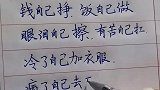 钱自己挣，饭自己做
眼泪自己擦，有苦自己扛
冷了自己加衣服
病了自己去